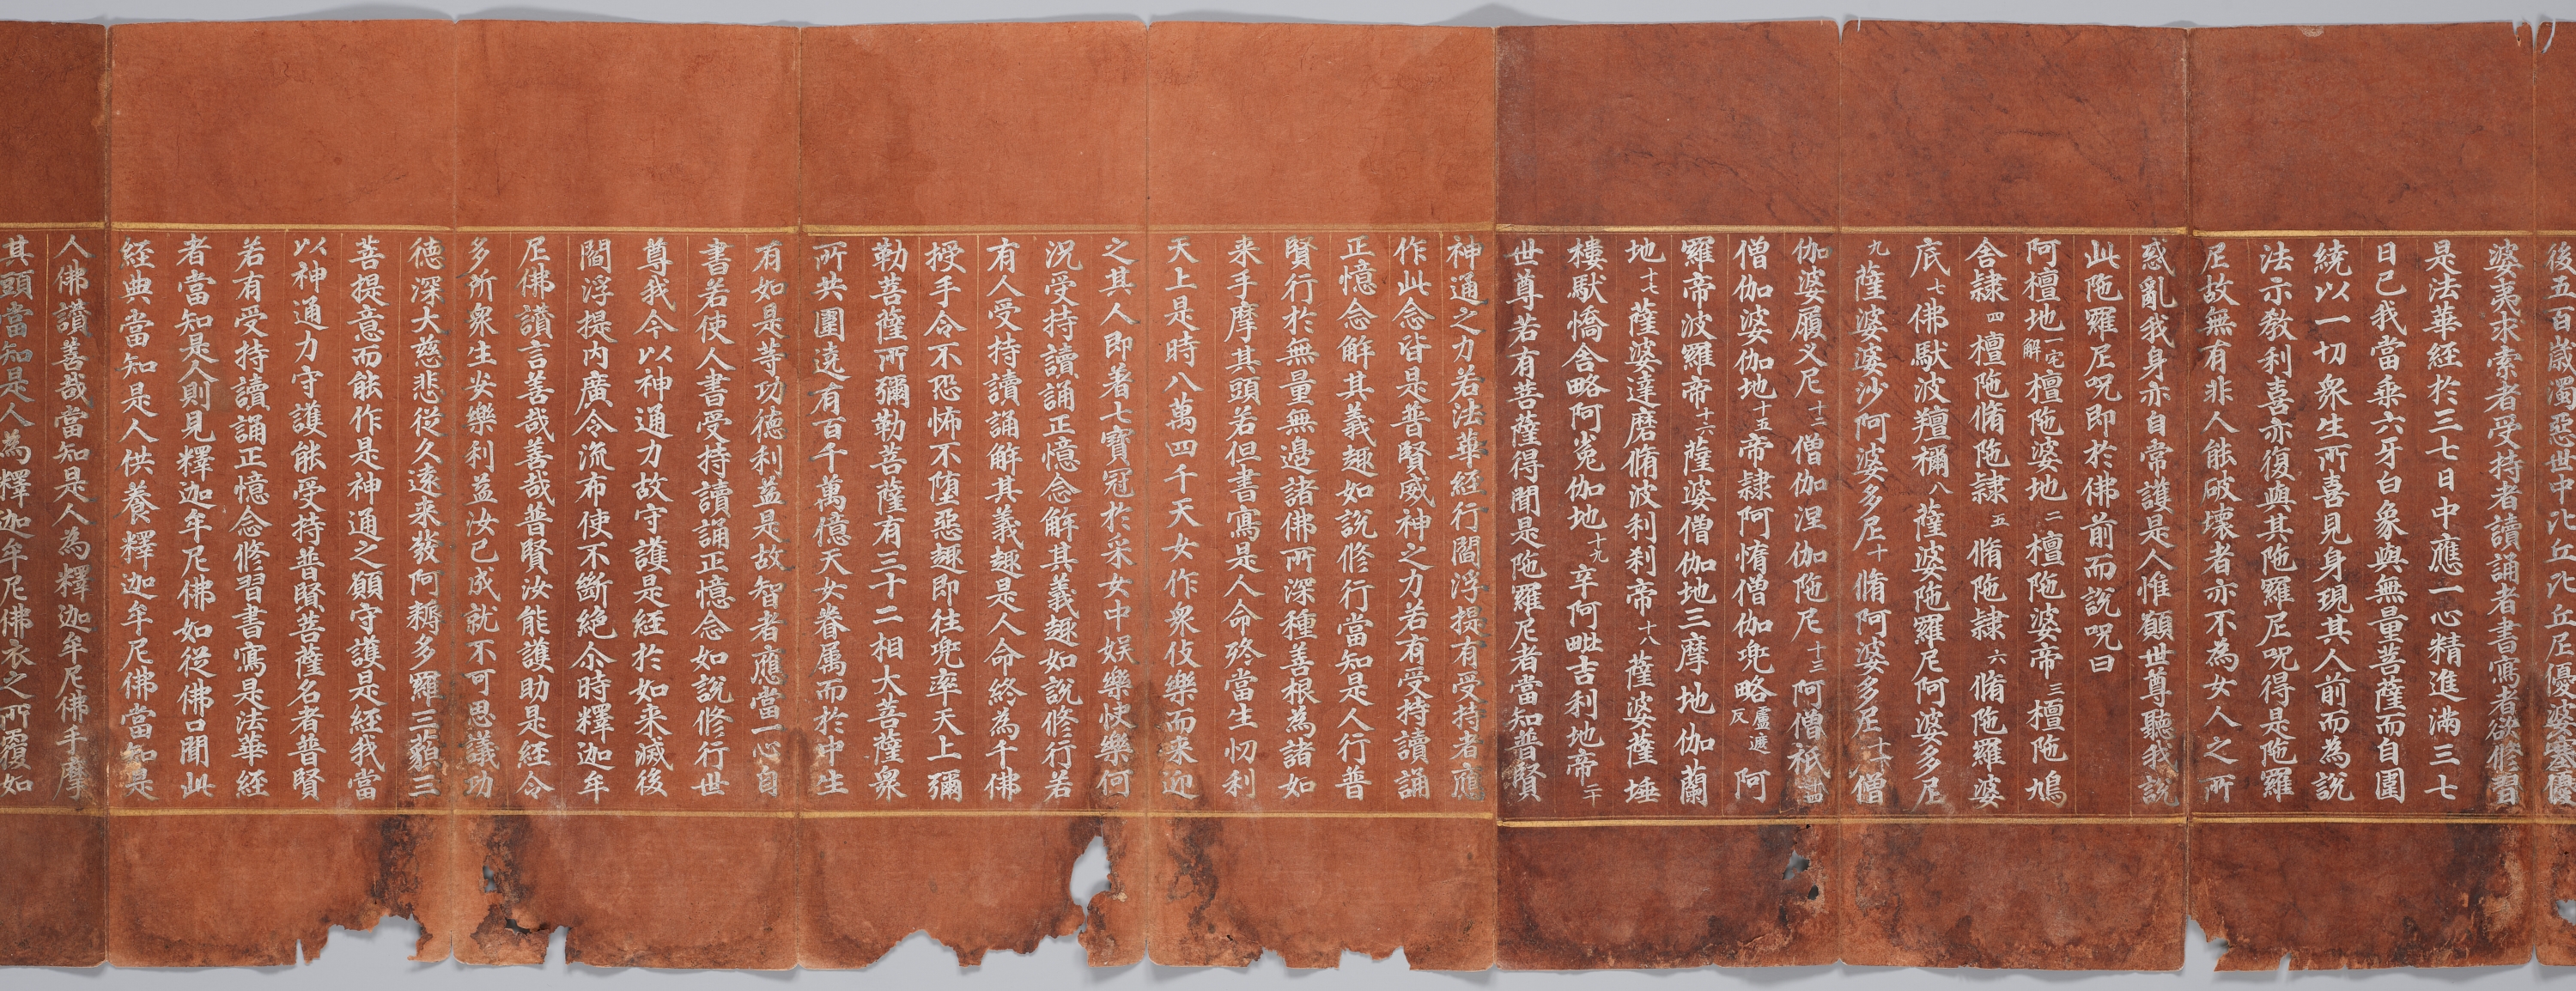 後五百歲濁惡世中比丘比丘尼優婆塞優
婆夷求索者受持者讀誦者書寫者欲修習
是法華經於三七日中應一心精進滿三七
日已我當乗六牙白象與無量菩薩而自圍
繞以一切衆生所喜見身現其人前而為說
法示教利喜亦復與其陁羅尼呪得是陁羅
尼故無有非人能破壞者亦不為女人之所
惑亂我身亦自常護是人惟願世尊聽我說
此陁羅尼呪即於佛前而說呪曰
阿檀地一宅解檀陁婆地二檀陁婆帝三檀陁鳩
舍隸四檀陁脩陁隸五脩陁隸六脩陁羅婆
底七佛馱波羶禰八薩婆陁羅尼阿婆多尼
九薩婆婆沙阿婆多尼十脩阿婆多尼十一僧
伽婆履叉尼十二僧伽涅伽陁尼十三阿僧祇十四
僧伽婆伽地十五帝隸阿惰僧伽兜略盧遮反阿
羅帝波羅帝十六薩婆僧伽地三摩地伽蘭
地十七薩婆達磨脩波利刹帝十八薩婆薩埵
樓馱憍舍略阿㝹伽地十九辛阿毗吉利地帝二十
世尊若有菩薩得聞是陁羅尼者當知普賢
神通之力若法華經行閻浮提有受持者應
作此念皆是普賢威神之力若有受持讀誦
正憶念解其義趣如說修行當知是人行普
賢行於無量無邊諸佛所深種善根為諸如
来手摩其頭若但書寫是人命終當生忉利
天上是時八萬四千天女作衆伎樂而来迎
之其人即著七寶冠於采女中娱樂快樂何
况受持讀誦正憶念解其義趣如說修行若
有人受持讀誦解其義趣是人命終為千佛
授手令不恐怖不堕惡趣即往兜率天上彌
勒菩薩所彌勒菩薩有三十二相大菩薩衆
所共圍遶有百千萬億天女眷属而於中生
有如是等功德利益是故智者應當一心自
書若使人書受持讀誦正憶念如說修行世
尊我今以神通力故守護是經於如来滅後
閻浮提内廣令流布使不斷絶尒時釋迦牟
尼佛讃言善哉善哉普賢汝能護助是經令
多所衆生安樂利益汝已成就不可思議功
德深大慈悲從久遠来發阿耨多羅三藐三
菩提意而能作是神通之願守護是經我當
以神通力守護能受持普賢菩薩名者普賢
若有受持讀誦正憶念修習書寫是法華經
者當知是人則見釋迦牟尼佛如從佛口聞此
経典當知是人供養釋迦牟尼佛當知是
人佛讃善哉當知是人為釋迦牟尼佛手摩
其頭當知是人為釋迦牟尼佛衣之所覆如